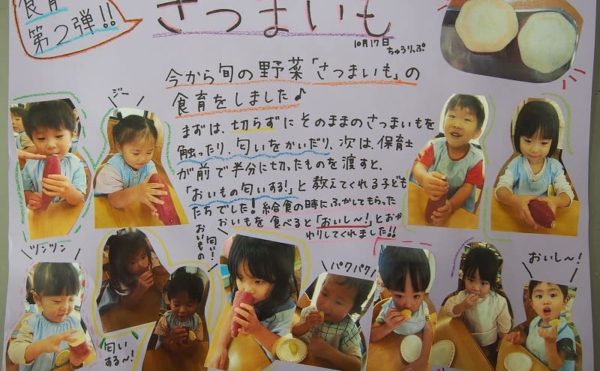 食育
第2弾!!
さつまいも
10月17日
ちゅうりっぷ
今から旬の野菜「さつまいも」の
食育をしました♪
まずは、切らずにそのままのさつまいもを
触ったり、匂いをかいだり、次は、保育士
が前で半分に切ったものを渡すと、
「おいもの匂いする!」と教えてくれる子ども
たちでした!給食の時にふかしてもらった
おいもを食べると「おいし~!」とおか
わりしてくれました!!
ジー
ツンツン
匂いする~!
おいもの匂い!
パクパク
おいし~!